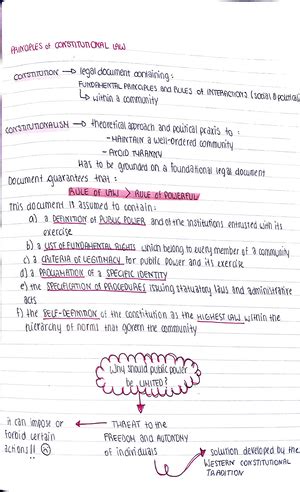 PRINCIPLES of CONSTITUTIONAL LAW
CONSTITUTION → legal document containing:
FUNDAMENTAL PRINCIPLES and RULES OF INTERACTIONS (social & political)
↳ within a community
CONSTITUTIONALISM → theoretical approach and political praxis to:
- MAINTAIN a well-ordered community
- AVOID TYRANNY
Has to be grounded on a foundational legal document
Document guarantees that:
RULE OF LAW > RULE OF POWERFUL
This document is assumed to contain:
a) a DEFINITION OF PUBLIC POWER and of the institutions entrusted with its
exercise
b) a LIST OF FUNDAMENTAL RIGHTS which belong to every member of a community
c) a CRITERIA OF LEGITIMACY for public power and its exercise
d) a PROCLAMATION of a SPECIFIC IDENTITY
e) the SPECIFICATION OF PROCEDURES issuing statutatory laws and administrative
acts
f) the SELF-DEFINITION of the constitution as the HIGHEST LAW within the
hierarchy of norms that govern the community
Why should public power
be LIMITED?
it can impose or
forbid certain
actions!!
← THREAT to the
FREEDOM and AUTONOMY
of individuals
solution developed by the
WESTERN CONSTITUTIONAL
TRADITION